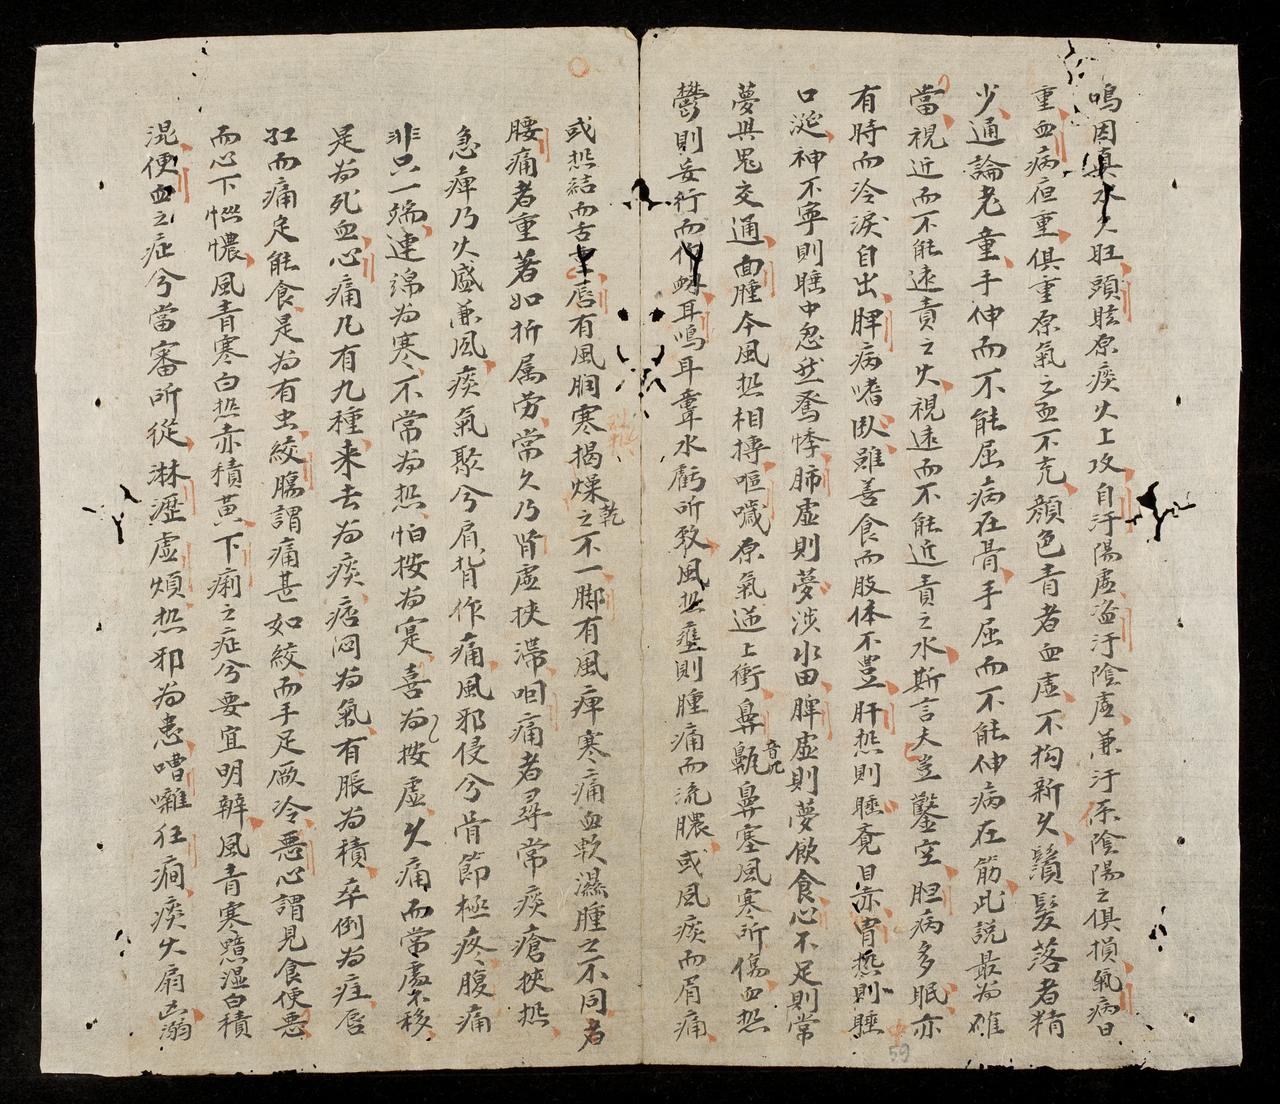 鳴因真水火旺頭眩原痰火上攻自汙陽虛盗汙陰虛兼汙系陰陽之俱損氣病日
重血病夜重俱重原氣之血不充顏色青者血虛不拘新久鬚髮落者精
少通論老童手伸而不能屈病在骨手屈而不能伸病在筋此說最為確
當視近而不能遠責之火視遠而不能近責之水斯言夫豈鑿空胆病多眠亦
有時而冷淚自出脾病嗜臥雖善食而肢体不豊肝热則睡竟目赤胃热則睡
口涎神不寧則睡中忽然驚悸肺虛則夢涉水田脾虛則夢飲食心不足則常
夢與鬼交通面腫今風热相摶嘔噦原氣逆上衝鼻鼽音尤鼻塞風寒所傷血热
鬱則妄行而 衄耳鳴耳聾水虧所致風热壅則腫痛而流膿或風痰而眉痛
或热結而舌 唇有風胗寒揭燥乾之不一脚有風痺寒痛血軟濕腫之不同者
腰痛者重著如折属劳常久乃腎虛挾滯咽痛者尋常痰瘡挾热
急痺乃火盛兼風痰氣聚兮肩背作痛風邪侵兮骨節極疼腹痛
非只一端連綿為寒不常為热怕按為寔喜為按虛火痛而常處不移
是為死血心痛凡有九種来去為痰痞悶為氣有脹為積卒倒為疰唇
紅而痛定能食是為有虫絞腸謂痛甚如絞而手足厥冷惡心謂見食便悪
而心下惱憹風青寒白热赤積黄下痢之症兮要宜明辨風青寒黯湿白積
混便血之症兮當審所從淋瀝虛煩热邪為患嘈囃狂癎痰火扇凶溺
59